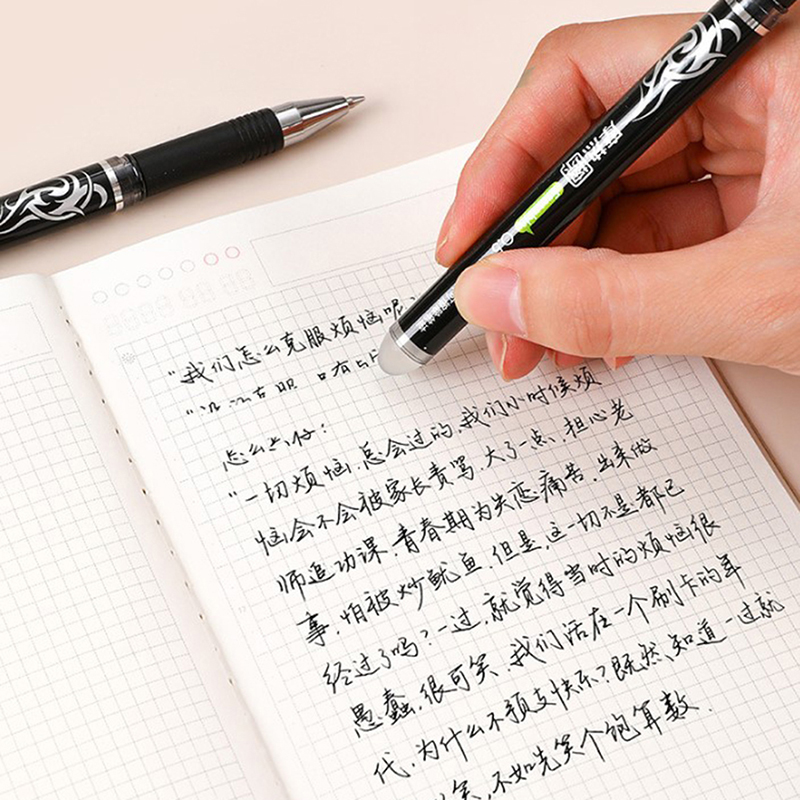 "我们怎么克服烦恼呢
怎么去好:
"一切烦恼,总会过的,我们小时候烦
恼会不会被家长责骂,大了一点,担心老
师追功课,青春期为失恋痛苦,出来做
事,怕被炒鱿鱼,但是,这一切不是都已
经过了吗?一过,就觉得当时的烦恼很
愚蠢,很可笑,我们活在一个刷卡的年
代,为什么不预支快乐?既然知道一过就
笑,不如先笑个饱算数.